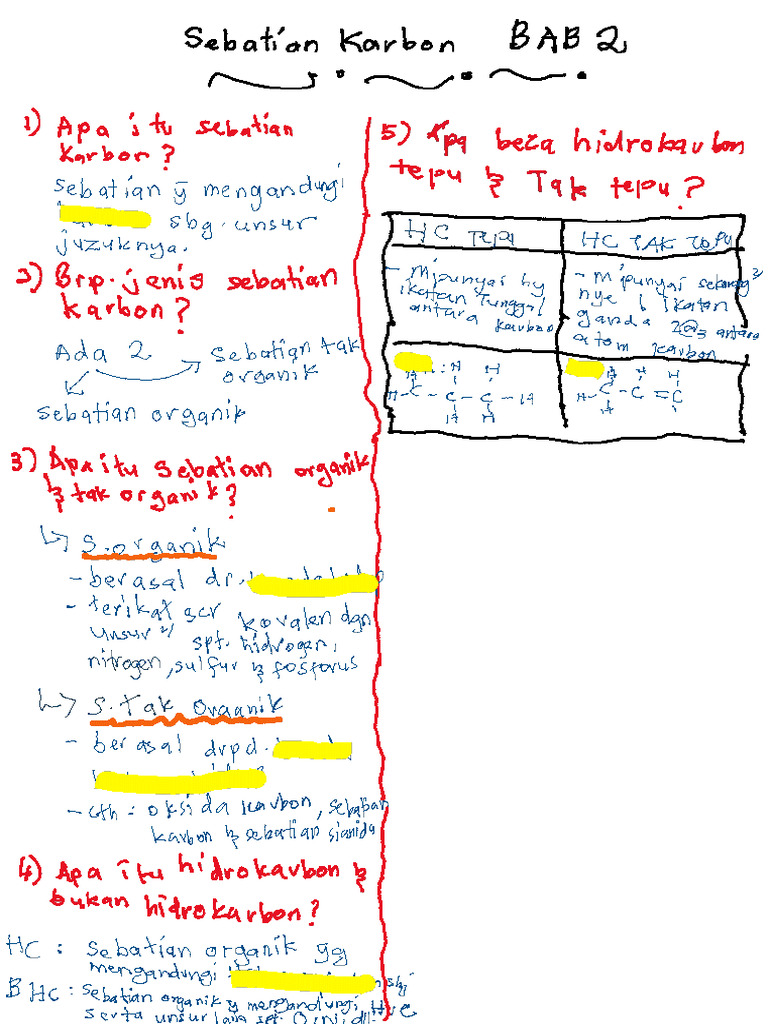 Sebatian Karbon BAB 2
1) Apa itu sebatian
karbon?
sebatian yg mengandungi
sbg. unsur
juzuknya.
2) Brp. jenis sebatian
karbon?
Ada 2
Sebatian tak
organik
sebatian organik
3) Apa itu sebatian organik
& tak organik?
↳ S. organik
- berasal dr.
- terikat scr kovalen dgn
unsur" spt. hidrogen,
nitrogen, sulfur & fosforus
↳ S. Tak Organik
- berasal drpd.
- cth: oksida karbon, sebatian
karbon & sebatian sianida
4) Apa itu hidrokarbon &
bukan hidrokarbon?
HC: Sebatian organik yg
mengandungi
BHC: Sebatian organik yg mengandungi
serta unsur lain spt. O, N
5) Apa beza hidrokarbon
tepu & Tak tepu?
HC Tepu
HC TAK Tepu
- M'punyai hy
ikatan Tunggal
antara karbon
- m'punyai sekurang²
nye 1 ikatan
ganda 2@3 antara
atom karbon
H H H
H-C-C-C-H
H H
H H H
H-C-C=C
H